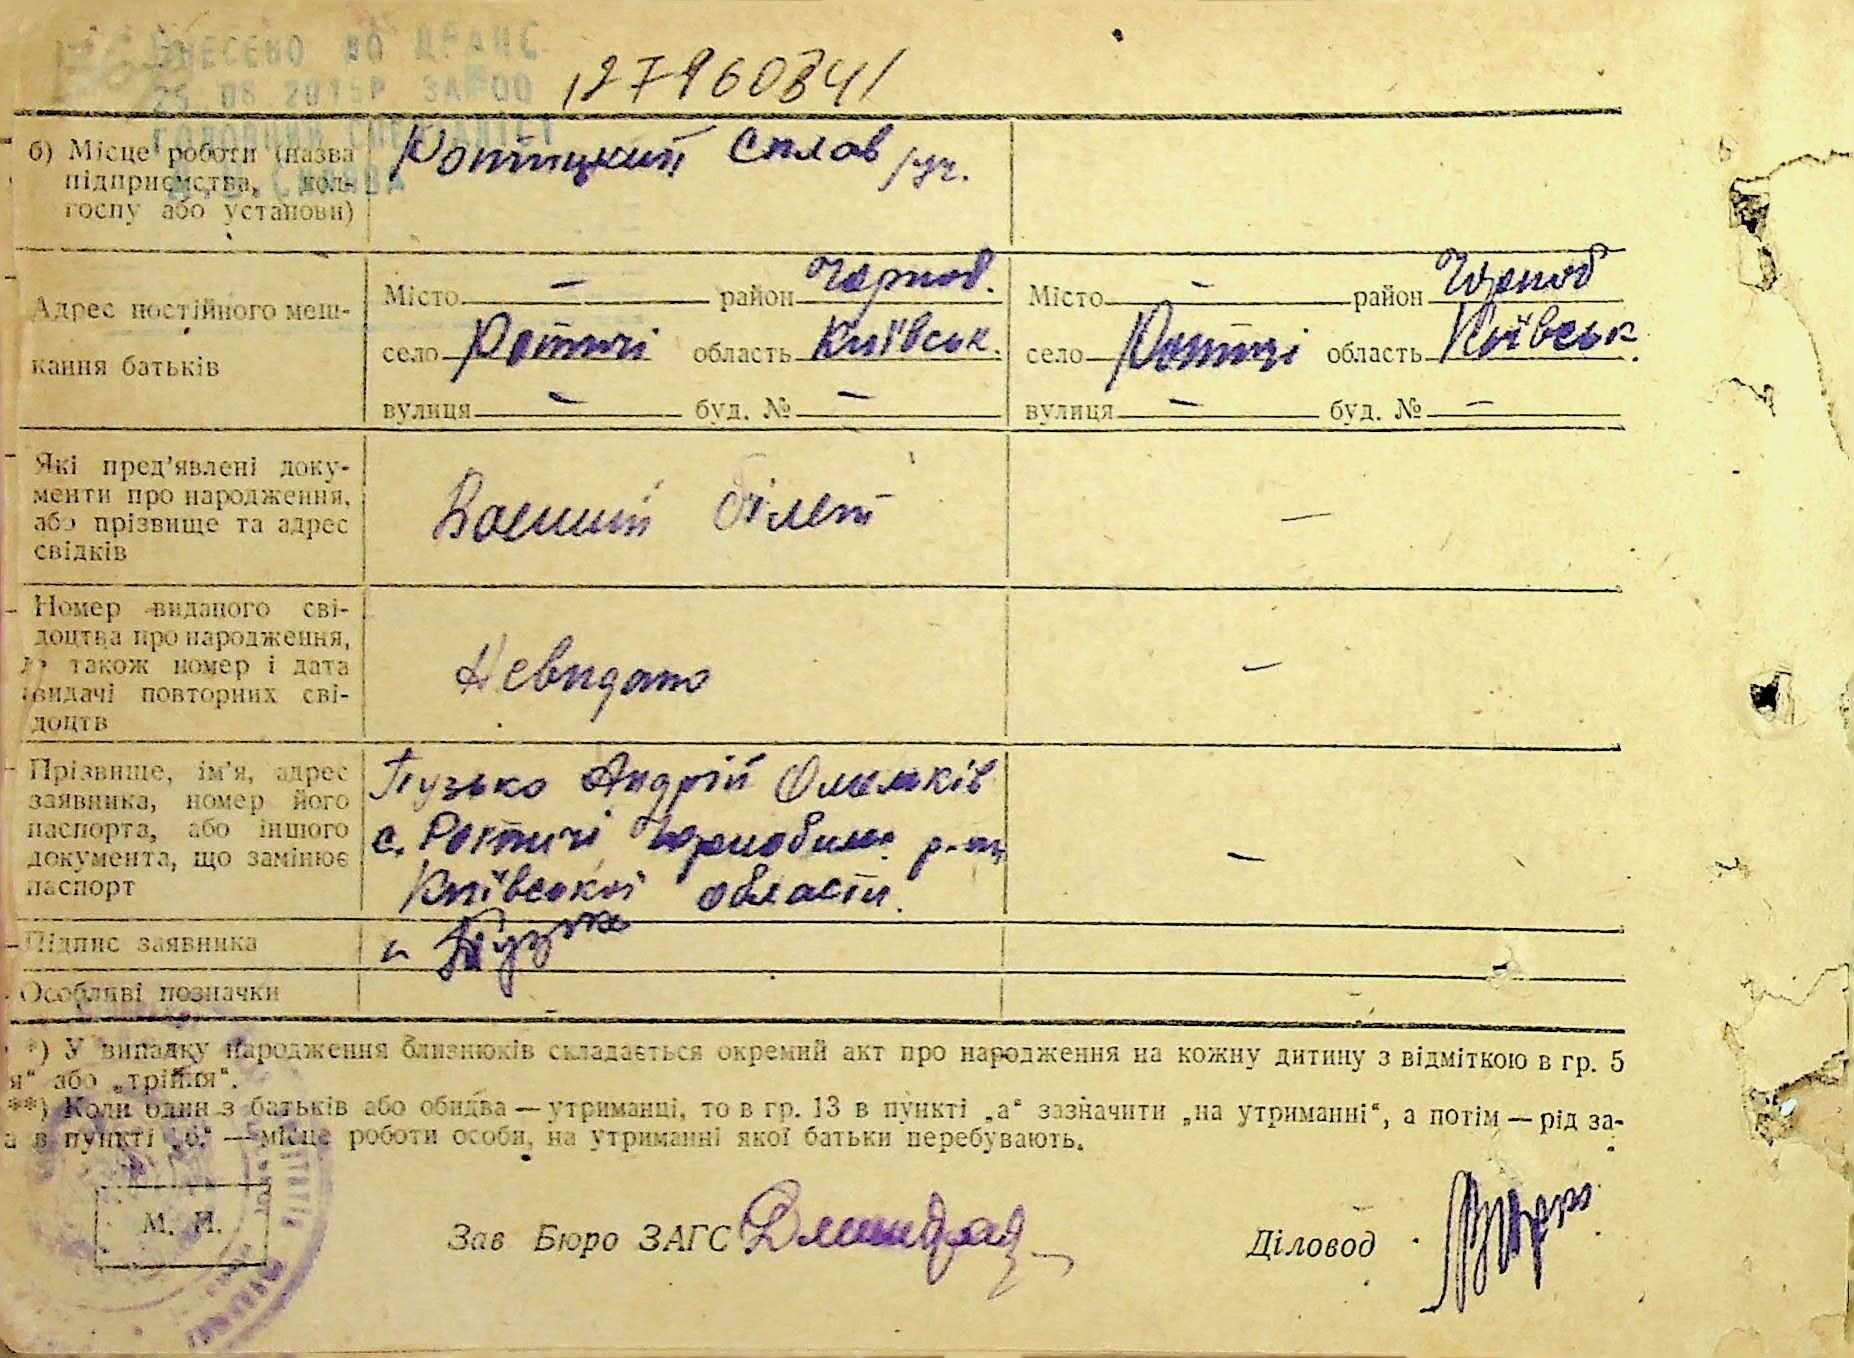 ВНЕСЕНО ДО ДРАЦС
25 06 2015Р
127960341
б) Місце роботи (назва підприємства, колгоспу або установи)
Сплав
Місто — район Чорноб.
Місто — район Чорноб
Адрес постійного мешкання батьків
село Ротичі область Київськ.
село Ротичі область Київськ.
вулиця — буд. № —
вулиця — буд. № —
Які пред’явлені документи про народження, або прізвище та адрес свідків
Воєнний білет
—
Номер виданого свідоцтва про народження, а також номер і дата видачі повторних свідоцтв
Невидано
—
Прізвище, ім’я, адрес заявника, номер його паспорта, або іншого документа, що замінює паспорт
Пузько Андрій Омельків
с. Ротичі Чорнобильс. р-ну
Київської области.
—
Підпис заявника
Пузько
—
Особливі позначки
*) У випадку народження близнюків складається окремий акт про народження на кожну дитину з відміткою в гр. 5
я“ або „трійня“.
**) Коли один з батьків або обидва — утриманці, то в гр. 13 в пункті „а“ зазначити „на утриманні“, а потім — рід за-
а в пункті „б“ — місце роботи особи, на утриманні якої батьки перебувають.
М. П.
Зав Бюро ЗАГС
Діловод